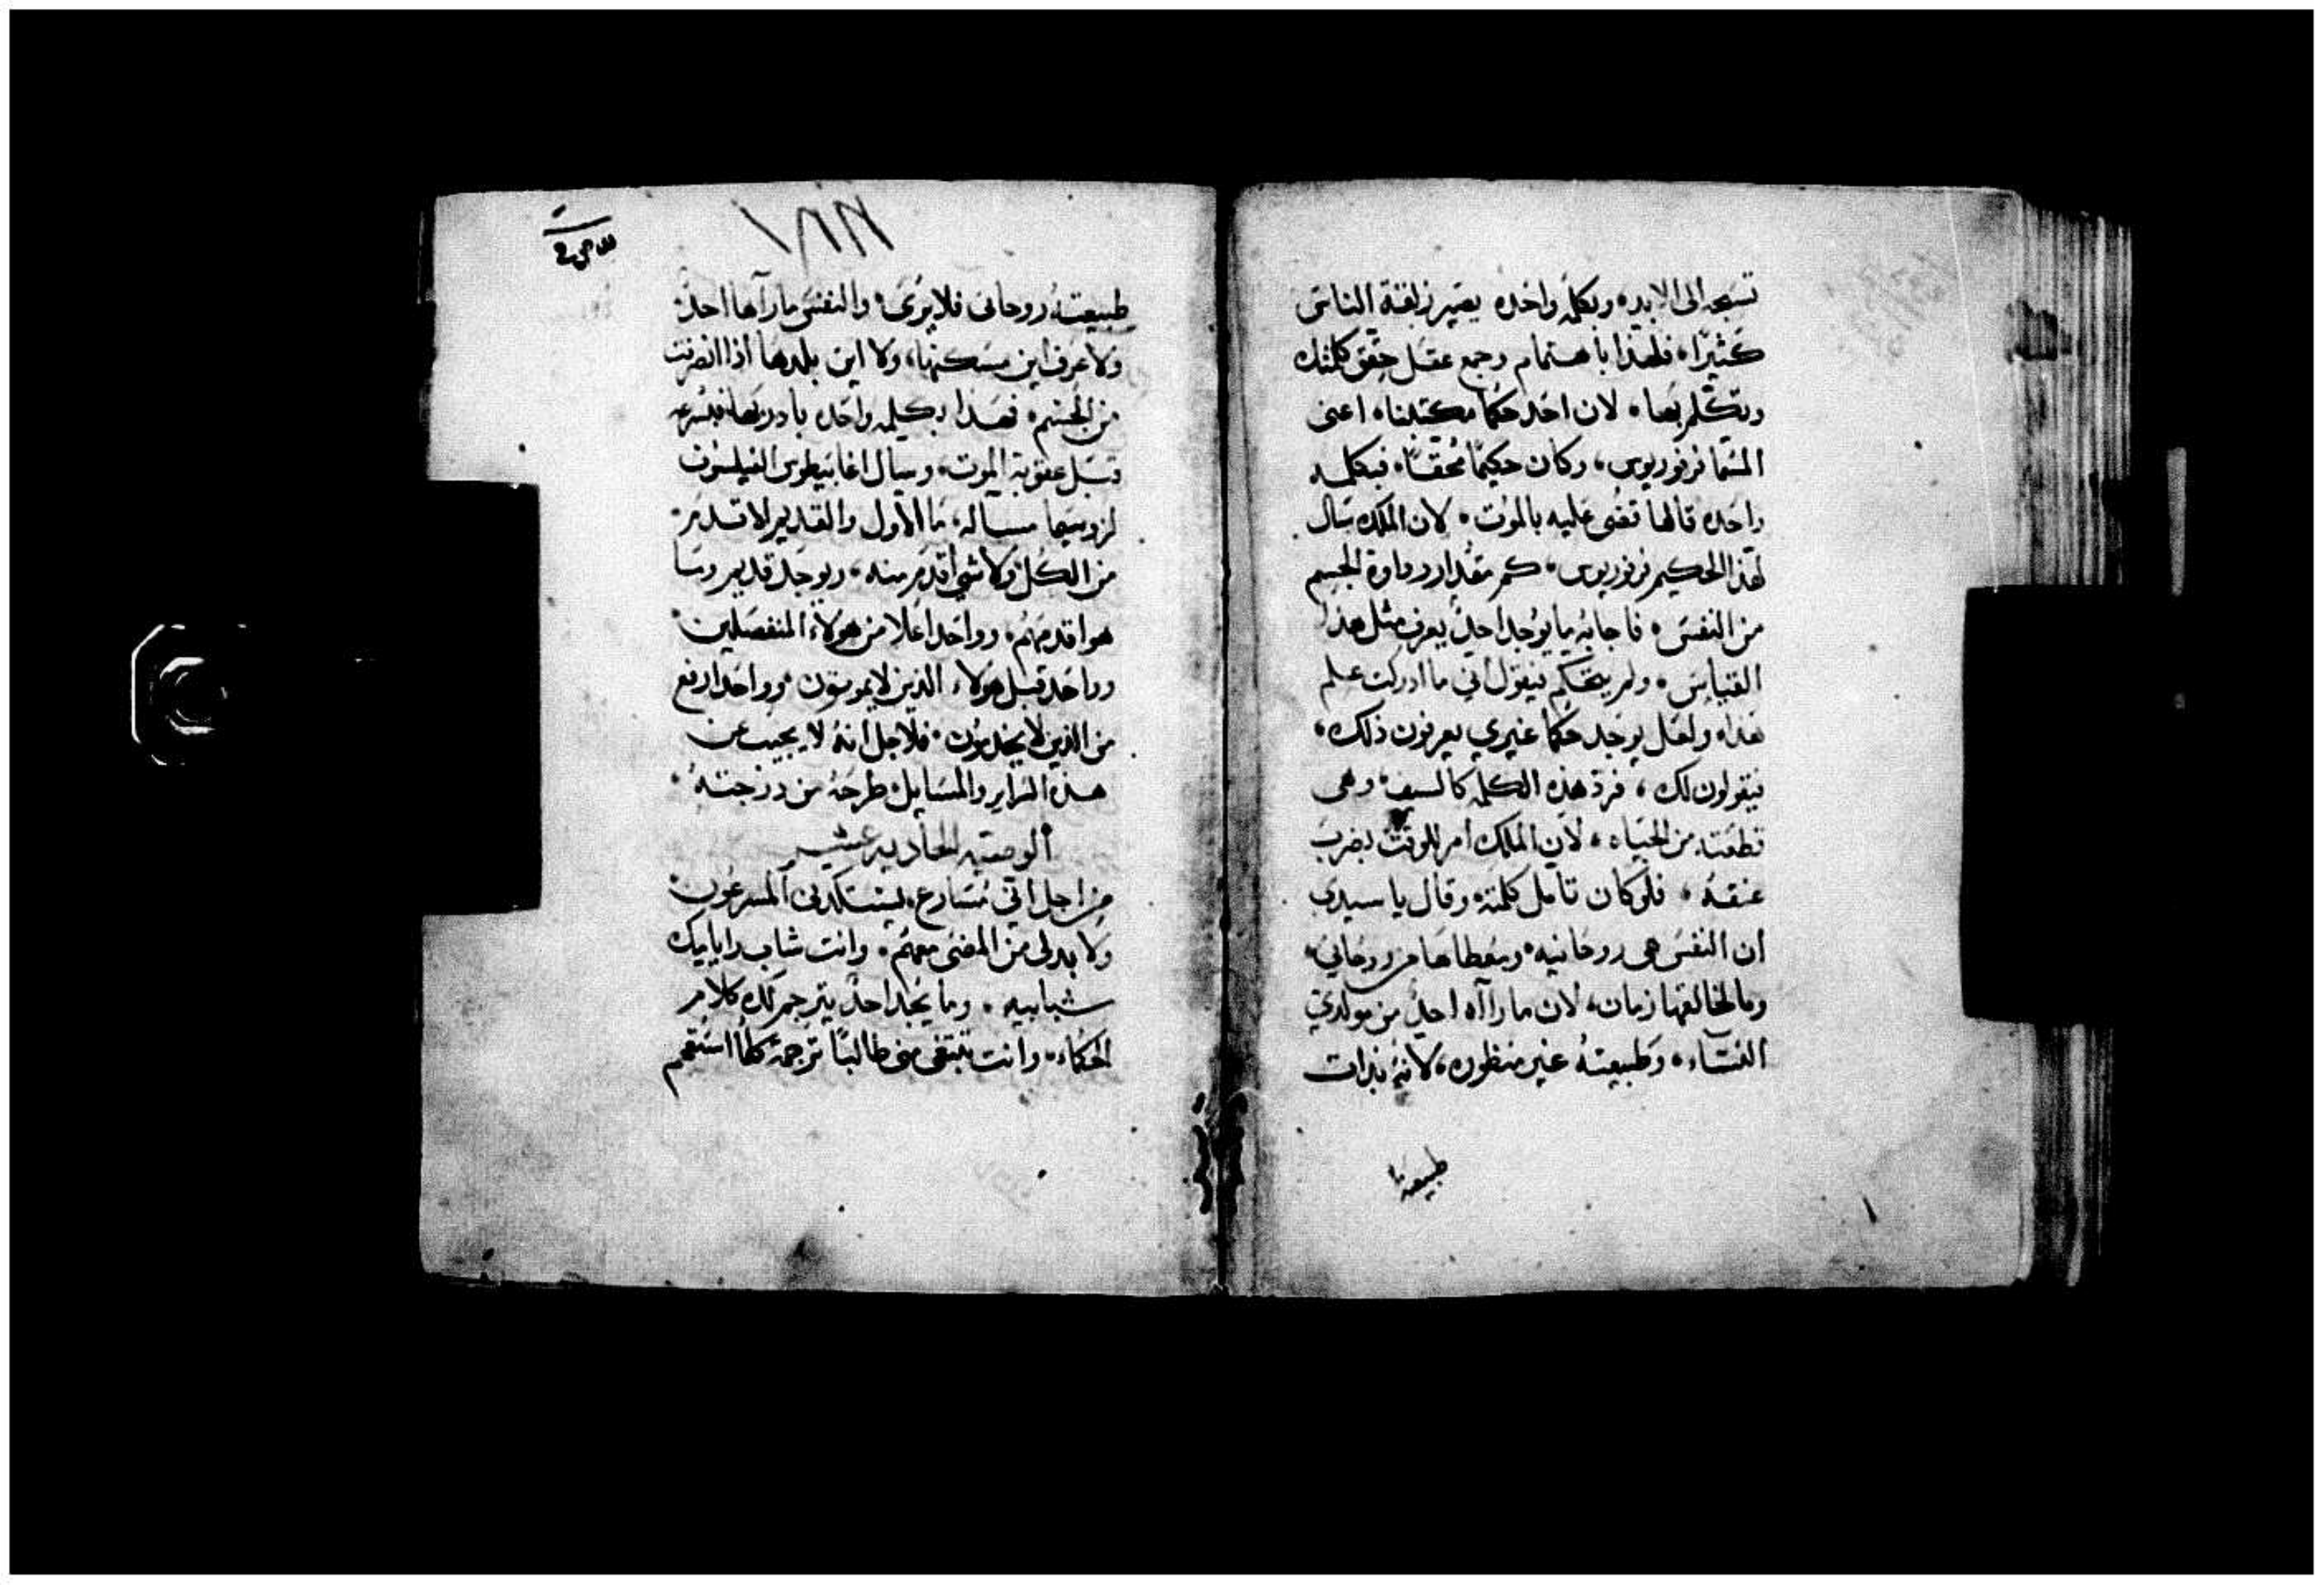 تسبحه الى الابد، وبكلمه واحده يصير زلقة الناس
كثيرًا، فلهذا باهتمام وجمع عقل حقق كلمتك
وتتكلم بها، لان احد حكما مكتلنا، اعنى
المسما فرفوريوس، وكان حكيمًا محققًا، فبكلمه
واحده قالها تقضى عليه بالموت، لان الملك سال
لهذا الحكيم فرفوريوس، كم مقدار رداوة الجسم
من النفس، فاجابه ما يوجد احد يعرف مثل هذا
القياس، ولم يتحكم فيقول اني ما ادركت علم
هذا، ولعل يوجد حكما غيري يعرفون ذلك،
فيقولون لك، فرد هذه الكلمه كالسيف، وهى
قطعته من الحياه، لان الملك امر للوقت بضرب
عنقه، فلو كان تامل كلمته، وقال يا سيدى
ان النفس هى روحانيه، ومعطاها هو روحاني،
وما لخالقها زمان، لان ما رااه احد من مولدي
النساء، وطبيعته غير منظوره، لانه بذات
طبيعته
طبيعته روحانى فلا يرى، والنفس ما رآها احد،
ولا عرف اين مسكنها، ولا اين بلدها اذا انصرفت
من الجسم، فهذا بكلمه واحده بادر بها فبسرعه
قبل عقوبة الموت، وسال اغابيطوس الفيلسوف
لزوسيما مساله، ما الاول والقديم الاقدم
من الكل ولا شي اقدم منه، ويوجد قديم وسا
هو اقدمهم، وواحد اعلا من هولاء المنفصلين
وواحد قبل هولاء الذين لا يموتون، وواحد ارفع
من الذين لا يخدمون، فلاجل انه لا يجيب عن
هذه السراير والمسايل، طرحه من درجته،
الوصيه الحاديه عشر
من اجل اني متسارع، يستكدنى المسرعون
ولا بد لى من المضى معهم، وانت شاب وايامك
شبابيه، وما يجد احد يترجم لك كلام
الحكماء، وانت تبتغى منى طالبًا ترجمة كلما استقيم